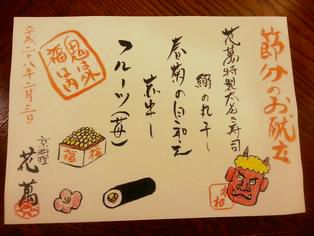 節分のお献立
花萬特製太巻き寿司
鰯の丸干し
春菊の白和え
赤出し
フルーツ(苺)
鬼は外
福は内
平成二十八年二月三日
京料理
花萬
福